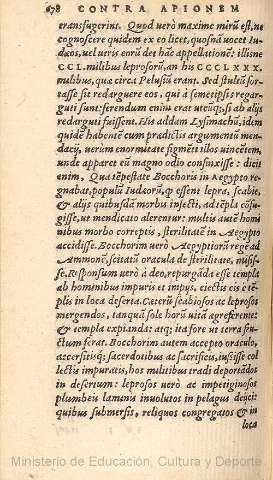 678 CONTRA APIONEM
transfugerint. Quod verò maxime mirũ est, ne
cognoscere quidem ex eo licet, quosnã vocet Iu-
dæos, vel utris eorũ det hãc appellationẽ: illisne
CCL. milibus leprosorũ, an his CCCLXXX.
milibus, quæ circa Pelusiũ erant. Sed stultũ for-
tasse sit redarguere eos, qui à semetipsis redar-
guti sunt: ferendum enim erat utcũq; si ab alijs
redarguti fuissent. His addam Lysimachũ, idem
quidẽ habentẽ cum prædictis argumentũ men-
dacij, verùm enormitate figmẽti illos vincẽtem,
unde apparet eũ magno odio confinxisse: dicit
enim, Qua tẽpestate Bocchoris in Aegypto re-
gnabat, populũ Iudæorũ, q̃ essent lepra, scabie,
& alijs quibusdã morbis infecti, ad tẽpla cõfu-
gisse, ut mendicato alerentur: multis autẽ homi
nibus morbo correptis, sterilitatẽ in Aegypto
accidisse. Bocchorim verò Aegyptiorũ regẽ ad
Ammonẽ, scitatũ oracula de sterilitate, misis-
se. Responsum verò à deo, repurgãda esse templa
ab hominibus impuris et impijs, eiectis eis è tẽ-
plis in loca deserta. Cæterũ scabiosos ac leprosos
mergendos, tanquã sole horũ vitã agreferente:
& templa expianda: atq; ita fore ut terra fru-
ctum ferat. Bocchorim autem accepto oraculo,
accersitisq; sacerdotibus ac sacrificis, iussisse col
lectis impuratis, hos militibus tradi deportãdos
in desertum: leprosos verò ac impetiginosos
plumbeis laminis involutos in pelagus deijci:
quibus submersis, reliquos congregatos & in
loca
Ministerio de Educación, Cultura y Deporte